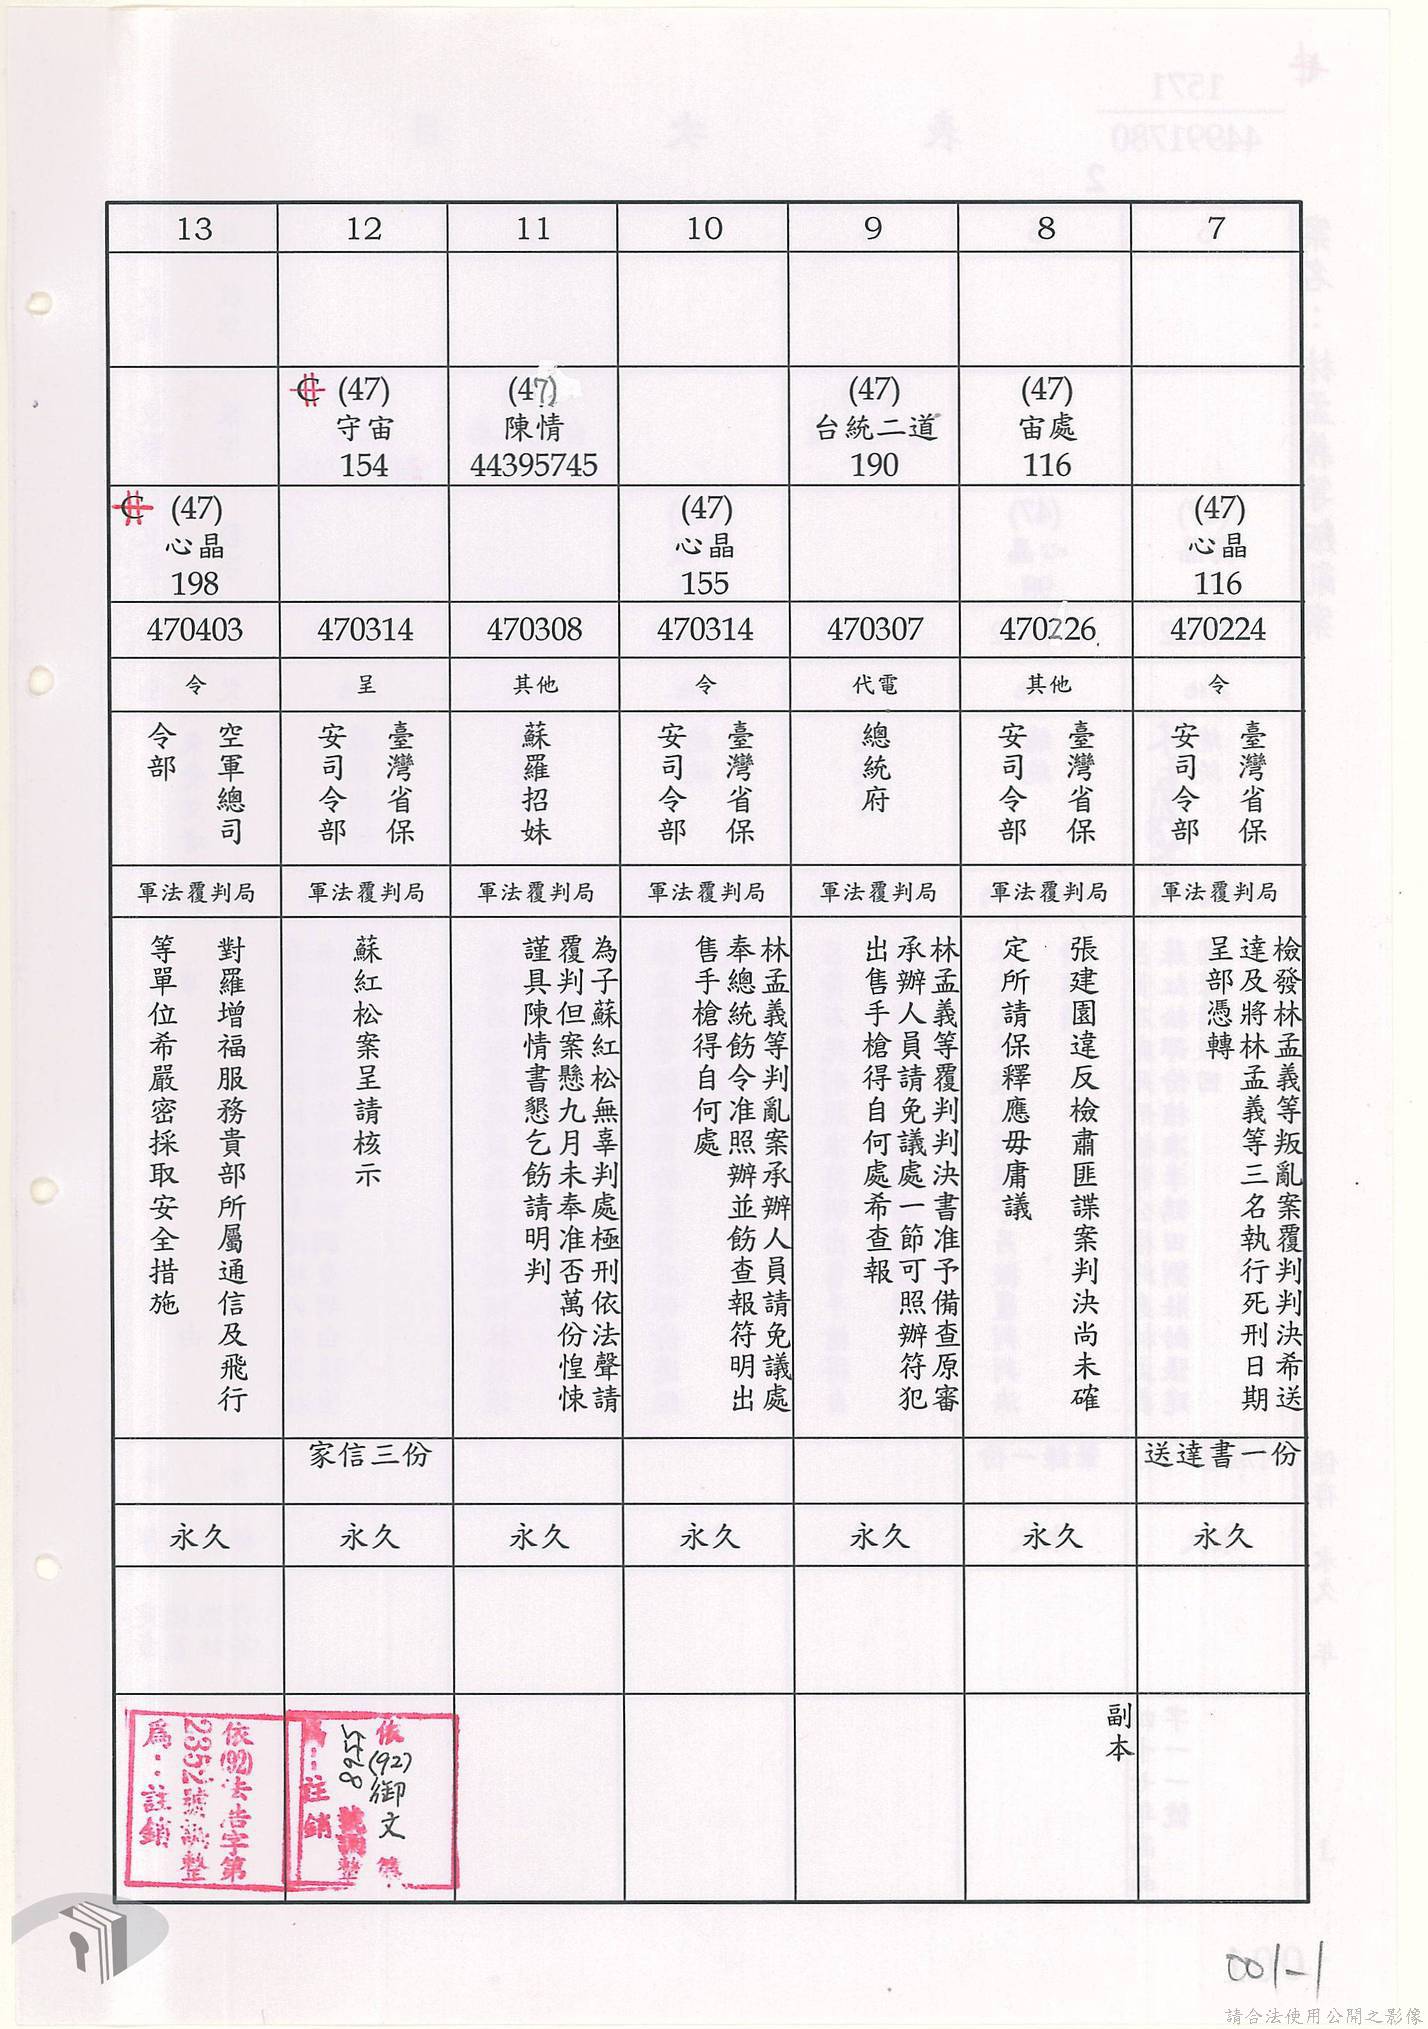 7
(47)
心晶
116
470224
令
臺灣省保
安司令部
軍法覆判局
檢發林孟義等叛亂案覆判判決希送
達及將林孟義等三名執行死刑日期
呈部憑轉
送達書一份
永久
8
(47)
宙處
116
470226
其他
臺灣省保
安司令部
軍法覆判局
張建園違反檢肅匪諜案判決尚未確
定所請保釋應毋庸議
永久
副本
9
(47)
台統二道
190
470307
代電
總統府
軍法覆判局
林孟義等覆判判決書准予備查原審
承辦人員請免議處一節可照辦符犯
出售手槍得自何處希查報
永久
10
(47)
心晶
155
470314
令
臺灣省保
安司令部
軍法覆判局
林孟義等判亂案承辦人員請免議處
奉總統飭令准照辦並飭查報符明出
售手槍得自何處
永久
11
(47)
陳情
44395745
470308
其他
蘇羅招妹
軍法覆判局
為子蘇紅松無辜判處極刑依法聲請
覆判但案懸九月未奉准否萬份惶悚
謹具陳情書懇乞飭請明判
永久
12
C (47)
守宙
154
470314
呈
臺灣省保
安司令部
軍法覆判局
蘇紅松案呈請核示
家信三份
永久
依(92)御文第
5568號調整
為：註銷
13
C (47)
心晶
198
470403
令
空軍總司
令部
軍法覆判局
對羅增福服務貴部所屬通信及飛行
等單位希嚴密採取安全措施
永久
依(92)法告字第
2352號調整
為：註銷
001-1
請合法使用公開之影像